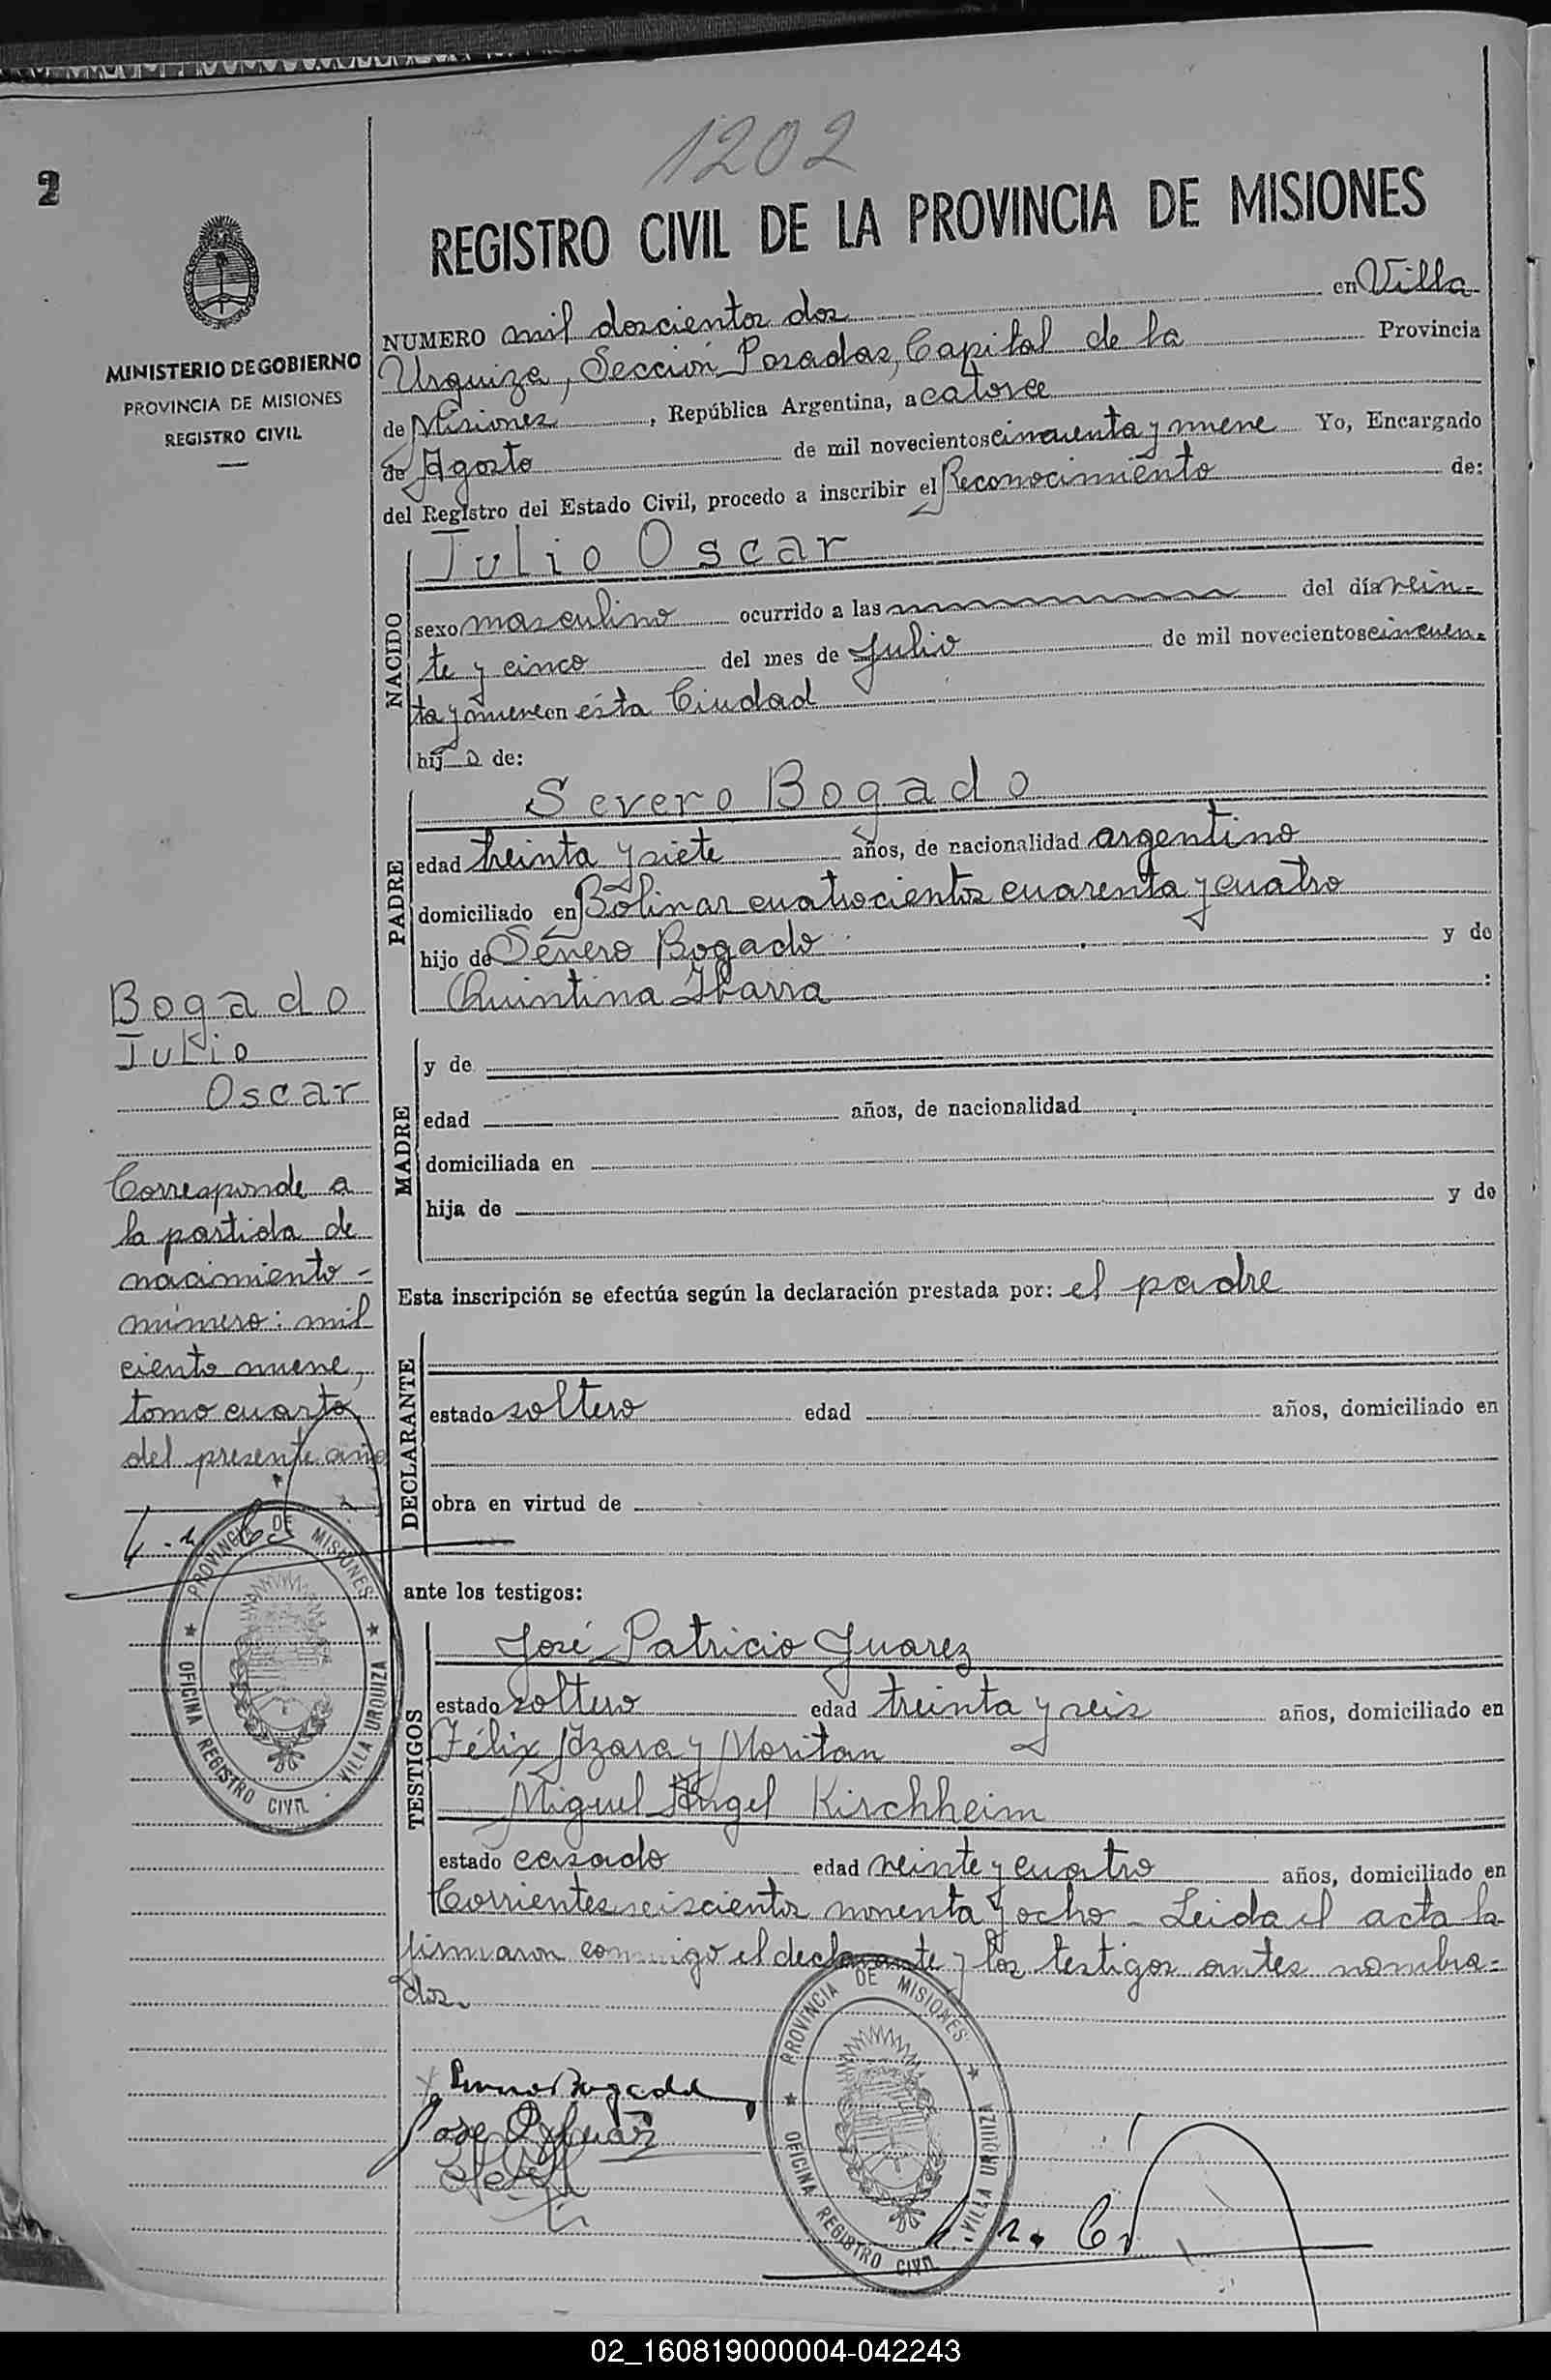 1202
2
REGISTRO CIVIL DE LA PROVINCIA DE MISIONES
MINISTERIO DE GOBIERNO
PROVINCIA DE MISIONES
REGISTRO CIVIL
NUMERO mil doscientos dos en Villa
Urquiza, Sección Posadas, Capital de la Provincia
de Misiones, República Argentina, a catorce
de Agosto de mil novecientos cincuenta y nueve Yo, Encargado
del Registro del Estado Civil, procedo a inscribir el Reconocimiento de:
NACIDO
Julio Oscar
sexo masculino ocurrido a las del día vein-
te y cinco del mes de Julio de mil novecientos cincuen-
ta y nueve en ésta Ciudad
hijo de:
PADRE
Severo Bogado
edad treinta y siete años, de nacionalidad argentino
domiciliado en Bolivar cuatrocientos cuarenta y cuatro
hijo de Severo Bogado y de
Quintina Ibarra :
MADRE
y de
edad años, de nacionalidad
domiciliada en
hija de y de
Esta inscripción se efectúa según la declaración prestada por: el padre
DECLARANTE
estado soltero edad años, domiciliado en
obra en virtud de
ante los testigos:
TESTIGOS
José Patricio Juarez
estado soltero edad treinta y seis años, domiciliado en
Félix Azara y Moritan
Miguel Angel Kirchheim
estado casado edad veinte y cuatro años, domiciliado en
Corrientes seiscientos noventa y ocho - Leida el acta la
firmaron conmigo el declarante y los testigos antes nombra-
dos.
Bogado
Julio
Oscar
Corresponde a
la partida de
nacimiento -
número: mil
ciento nueve,
tomo cuarto
del presente año
PROVINCIA DE MISIONES
OFICINA REGISTRO CIVIL - VILLA URQUIZA
Bogado
Jose
PROVINCIA DE MISIONES
OFICINA REGISTRO CIVIL - VILLA URQUIZA
02_160819000004-042243